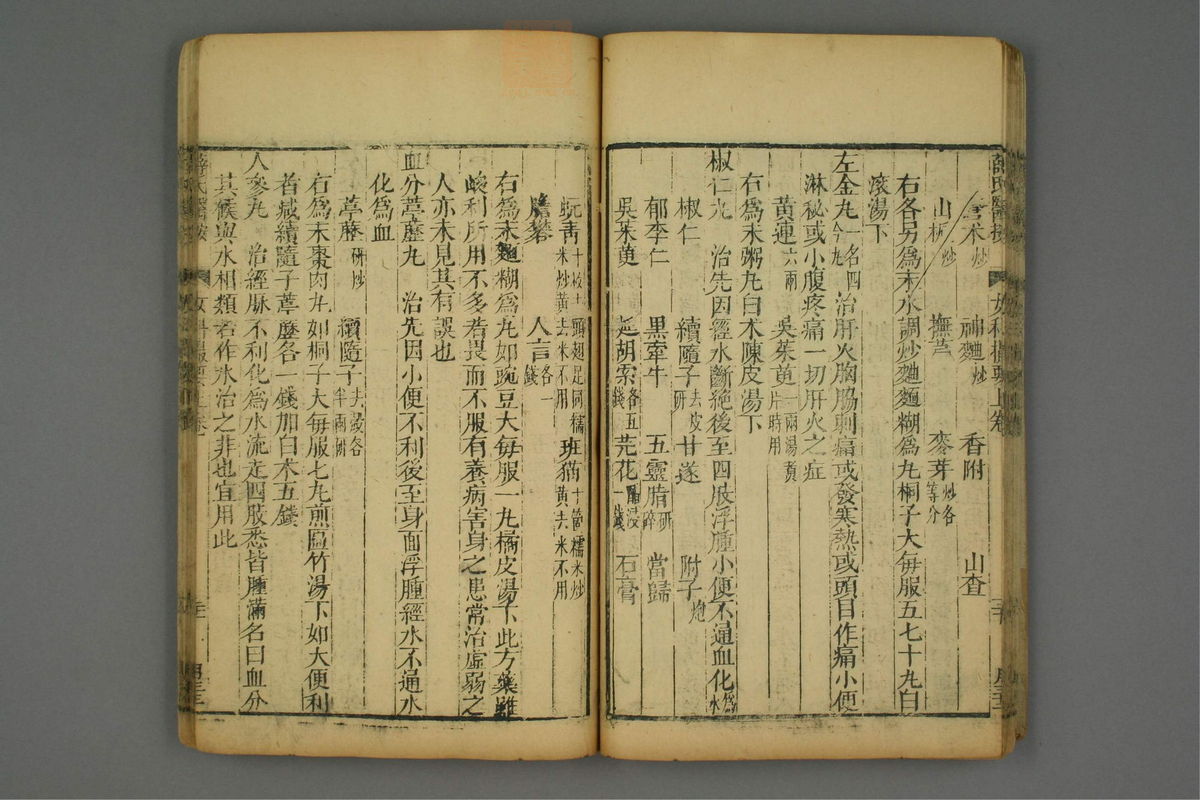 薛氏醫按 女科撮要上卷
白朮炒 神麯炒 香附 山查
山梔炒 撫芎 麥芽炒各等分
右各另爲末水調炒麯麵糊爲丸桐子大每服五七十丸白
滾湯下
左金丸一名四金丸 治肝火胸脇刺痛或發寒熱或頭目作痛小便
淋秘或小腹疼痛一切肝火之症
黃連六兩 吳茱萸一兩湯煑片時用
右爲末粥丸白朮陳皮湯下
椒仁丸 治先因經水斷絶後至四肢浮腫小便不通血化爲水
椒仁 續隨子去皮研 甘遂 附子炮
郁李仁 黑牽牛 五靈脂研碎 當歸
吳茱萸 延胡索各五錢 芫花醋浸一錢 石膏
蚖青十枚去頭翅足同糯米炒黃去米不用 斑猫十箇糯米炒黃去米不用
膽礬 人言各一錢
右爲末麵糊爲丸如豌豆大每服一丸橘皮湯下此方藥雖
峻利所用不多若畏而不服有養病害身之患常治虛弱之
人亦未見其有誤也
血分葶藶丸 治先因小便不利後至身面浮腫經水不通水
化爲血
葶藶研炒 續隨子去殼各半兩研
右爲末棗肉丸如桐子大每服七丸煎扁竹湯下如大便利
者減續隨子葶藶各一錢加白朮五錢
人參丸 治經脉不利化爲水流走四肢悉皆腫滿名曰血分
其候與水相類若作水治之非也宜用此
薛氏醫按 女科撮要上卷